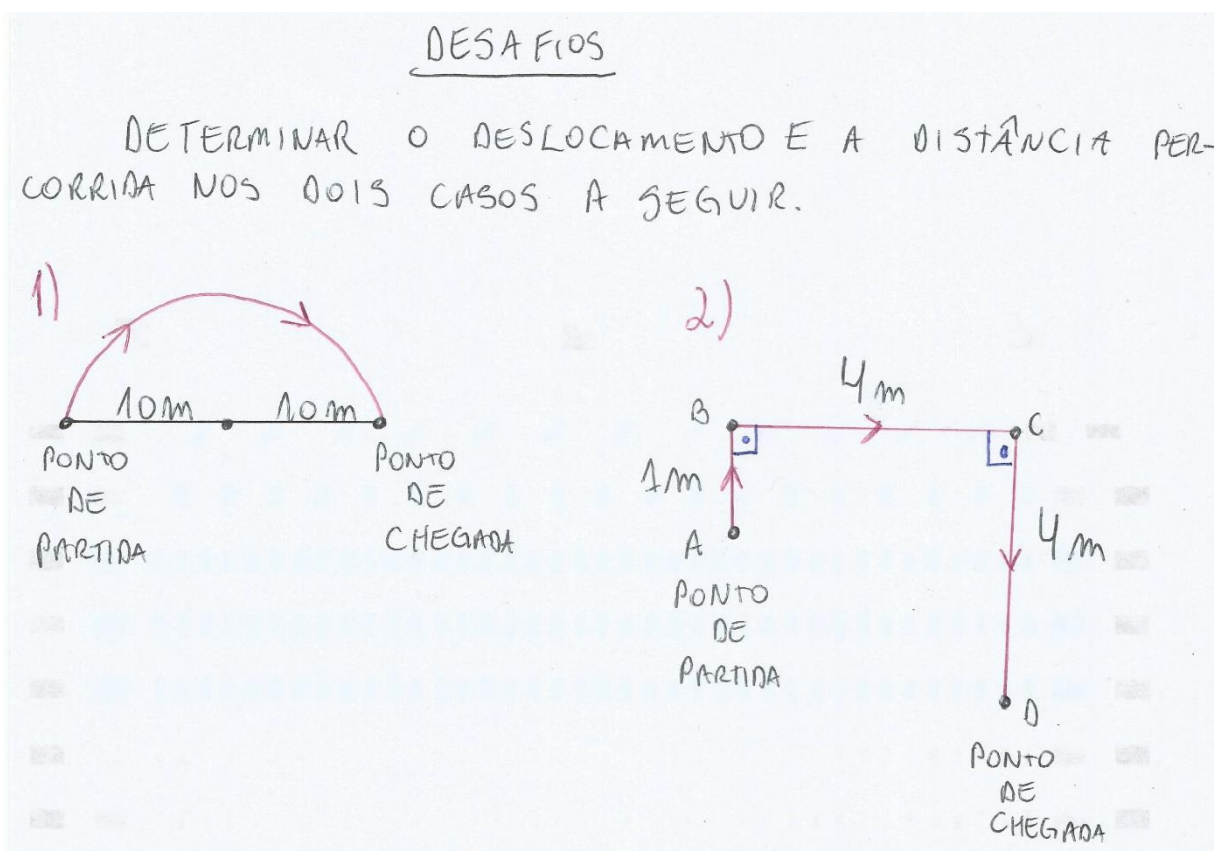 DESAFIOS
DETERMINAR O DESLOCAMENTO E A DISTÂNCIA PER-
CORRIDA NOS DOIS CASOS A SEGUIR.
1)
10m 10m
PONTO
DE
PARTIDA
PONTO
DE
CHEGADA
2)
B 4m C
1m
A
PONTO
DE
PARTIDA
4m
D
PONTO
DE
CHEGADA